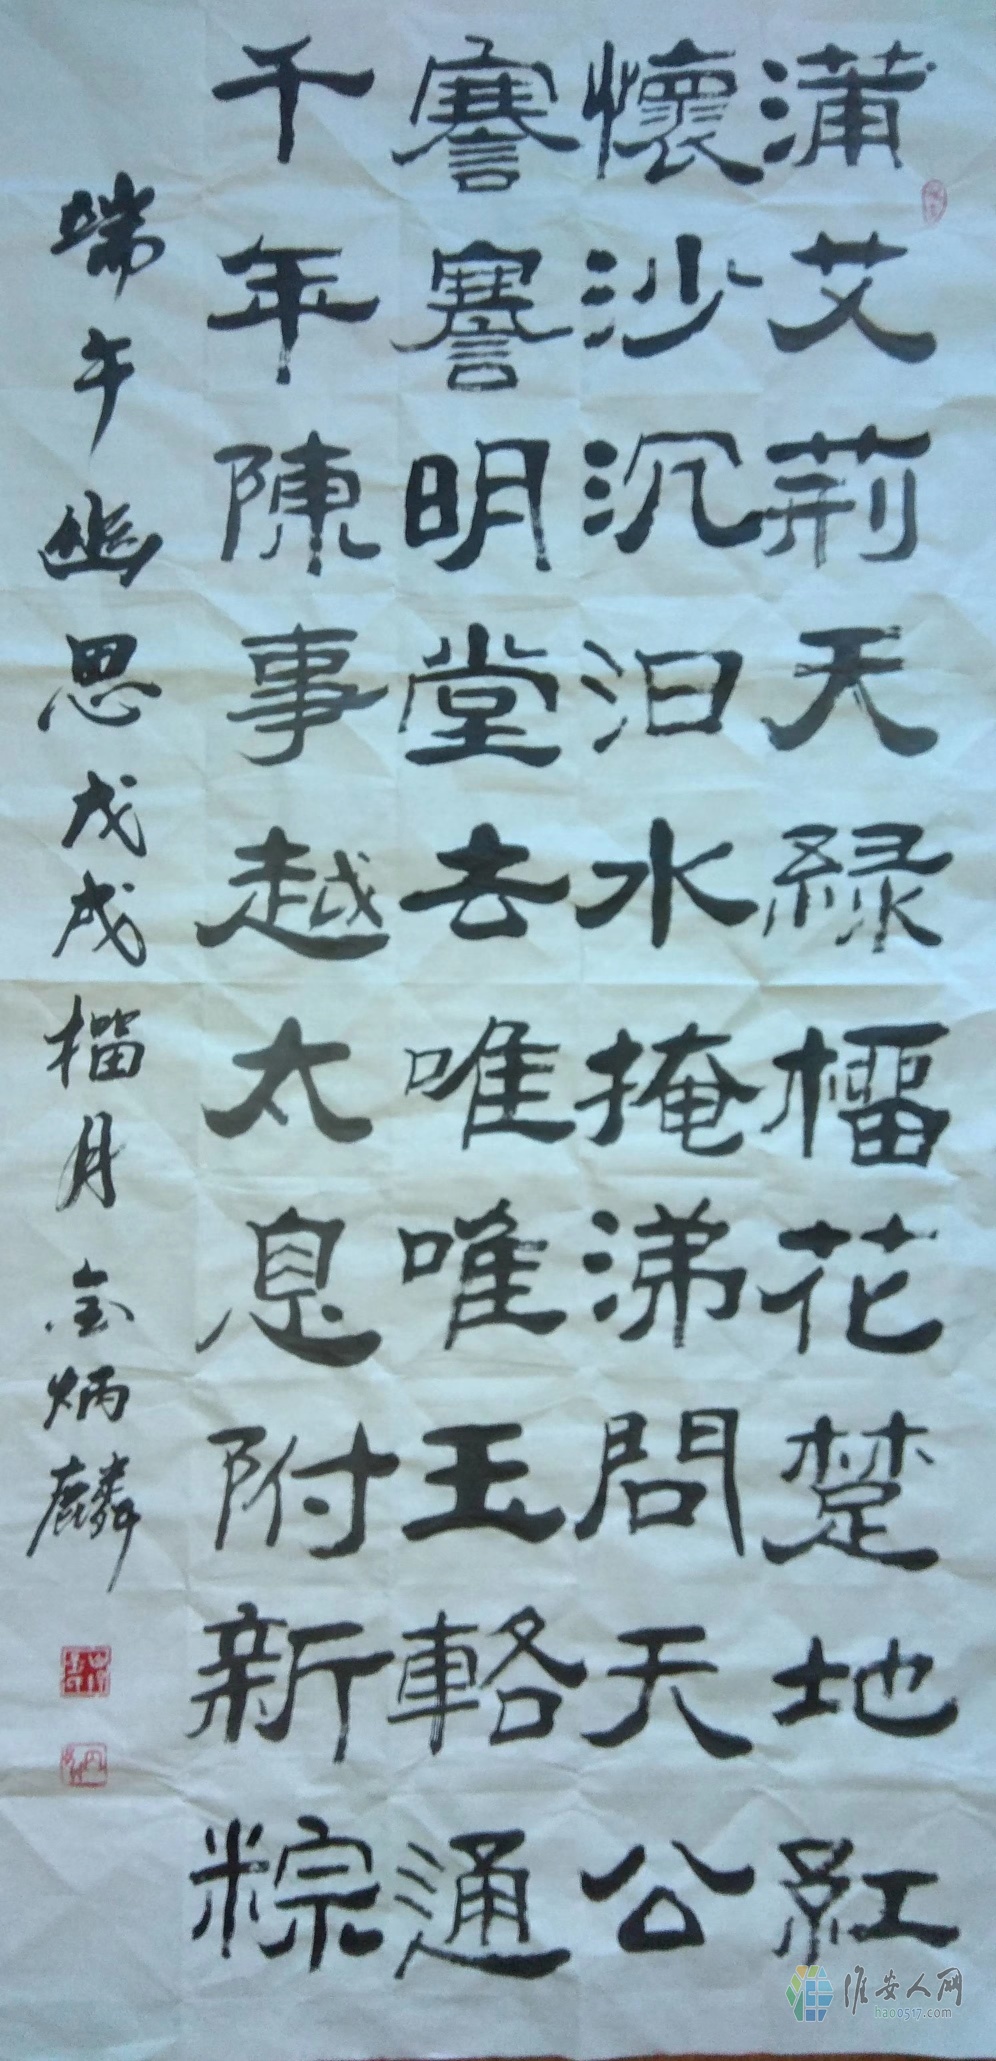 蒲艾荊天綠榴花楚地紅
懷沙沉汨水掩涕問天公
謇謇明堂去唯唯玉輅通
千年陳事越太息附新粽
端午幽思戊戌榴月金炳麟
淮安人网
hao0517.com